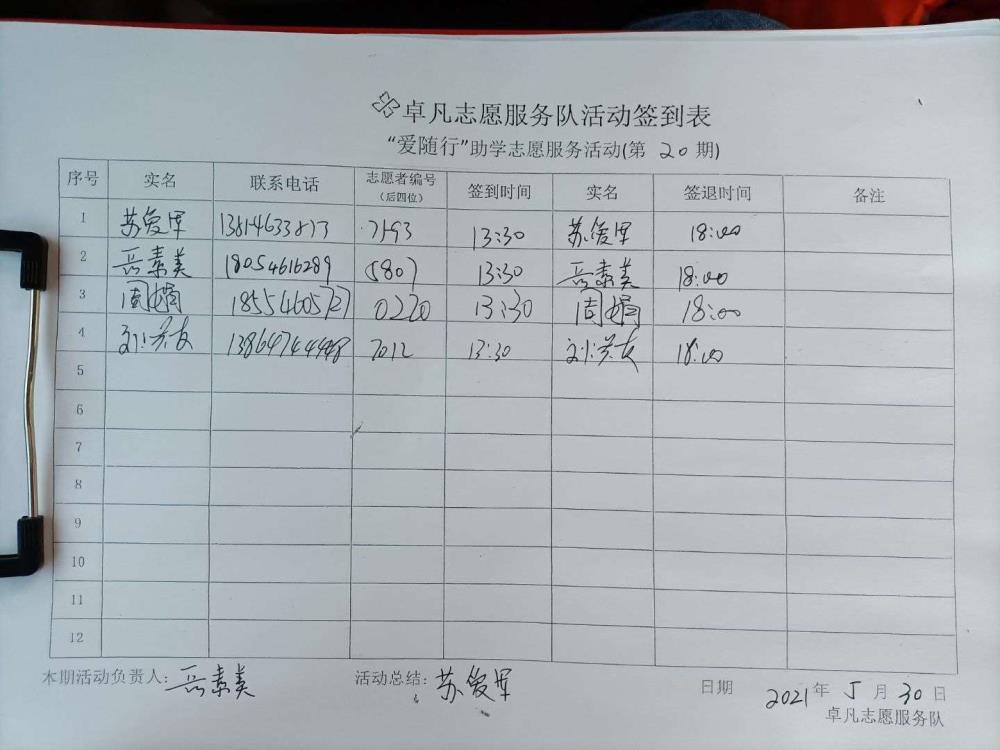 卓凡志愿服务队活动签到表
“爱随行”助学志愿服务活动(第 20 期)
序号 实名 联系电话 志愿者编号(后四位) 签到时间 实名 签退时间 备注
1 苏爱军 13814633873 7193 13:30 苏爱军 18:00
2 岳素美 18054616289 5807 13:30 岳素美 18:00
3 周娟 18554605727 0220 13:30 周娟 18:00
4 刘芳友 13864744948 7012 13:30 刘芳友 18:00
5
6
7
8
9
10
11
12
本期活动负责人: 岳素美 活动总结: 苏爱军 日期 2021 年 5 月 30 日
卓凡志愿服务队